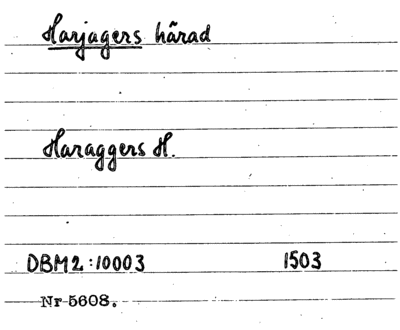 Harjagers härad
Haraggers H.
DBM2:10003 1503
Nr 5608.